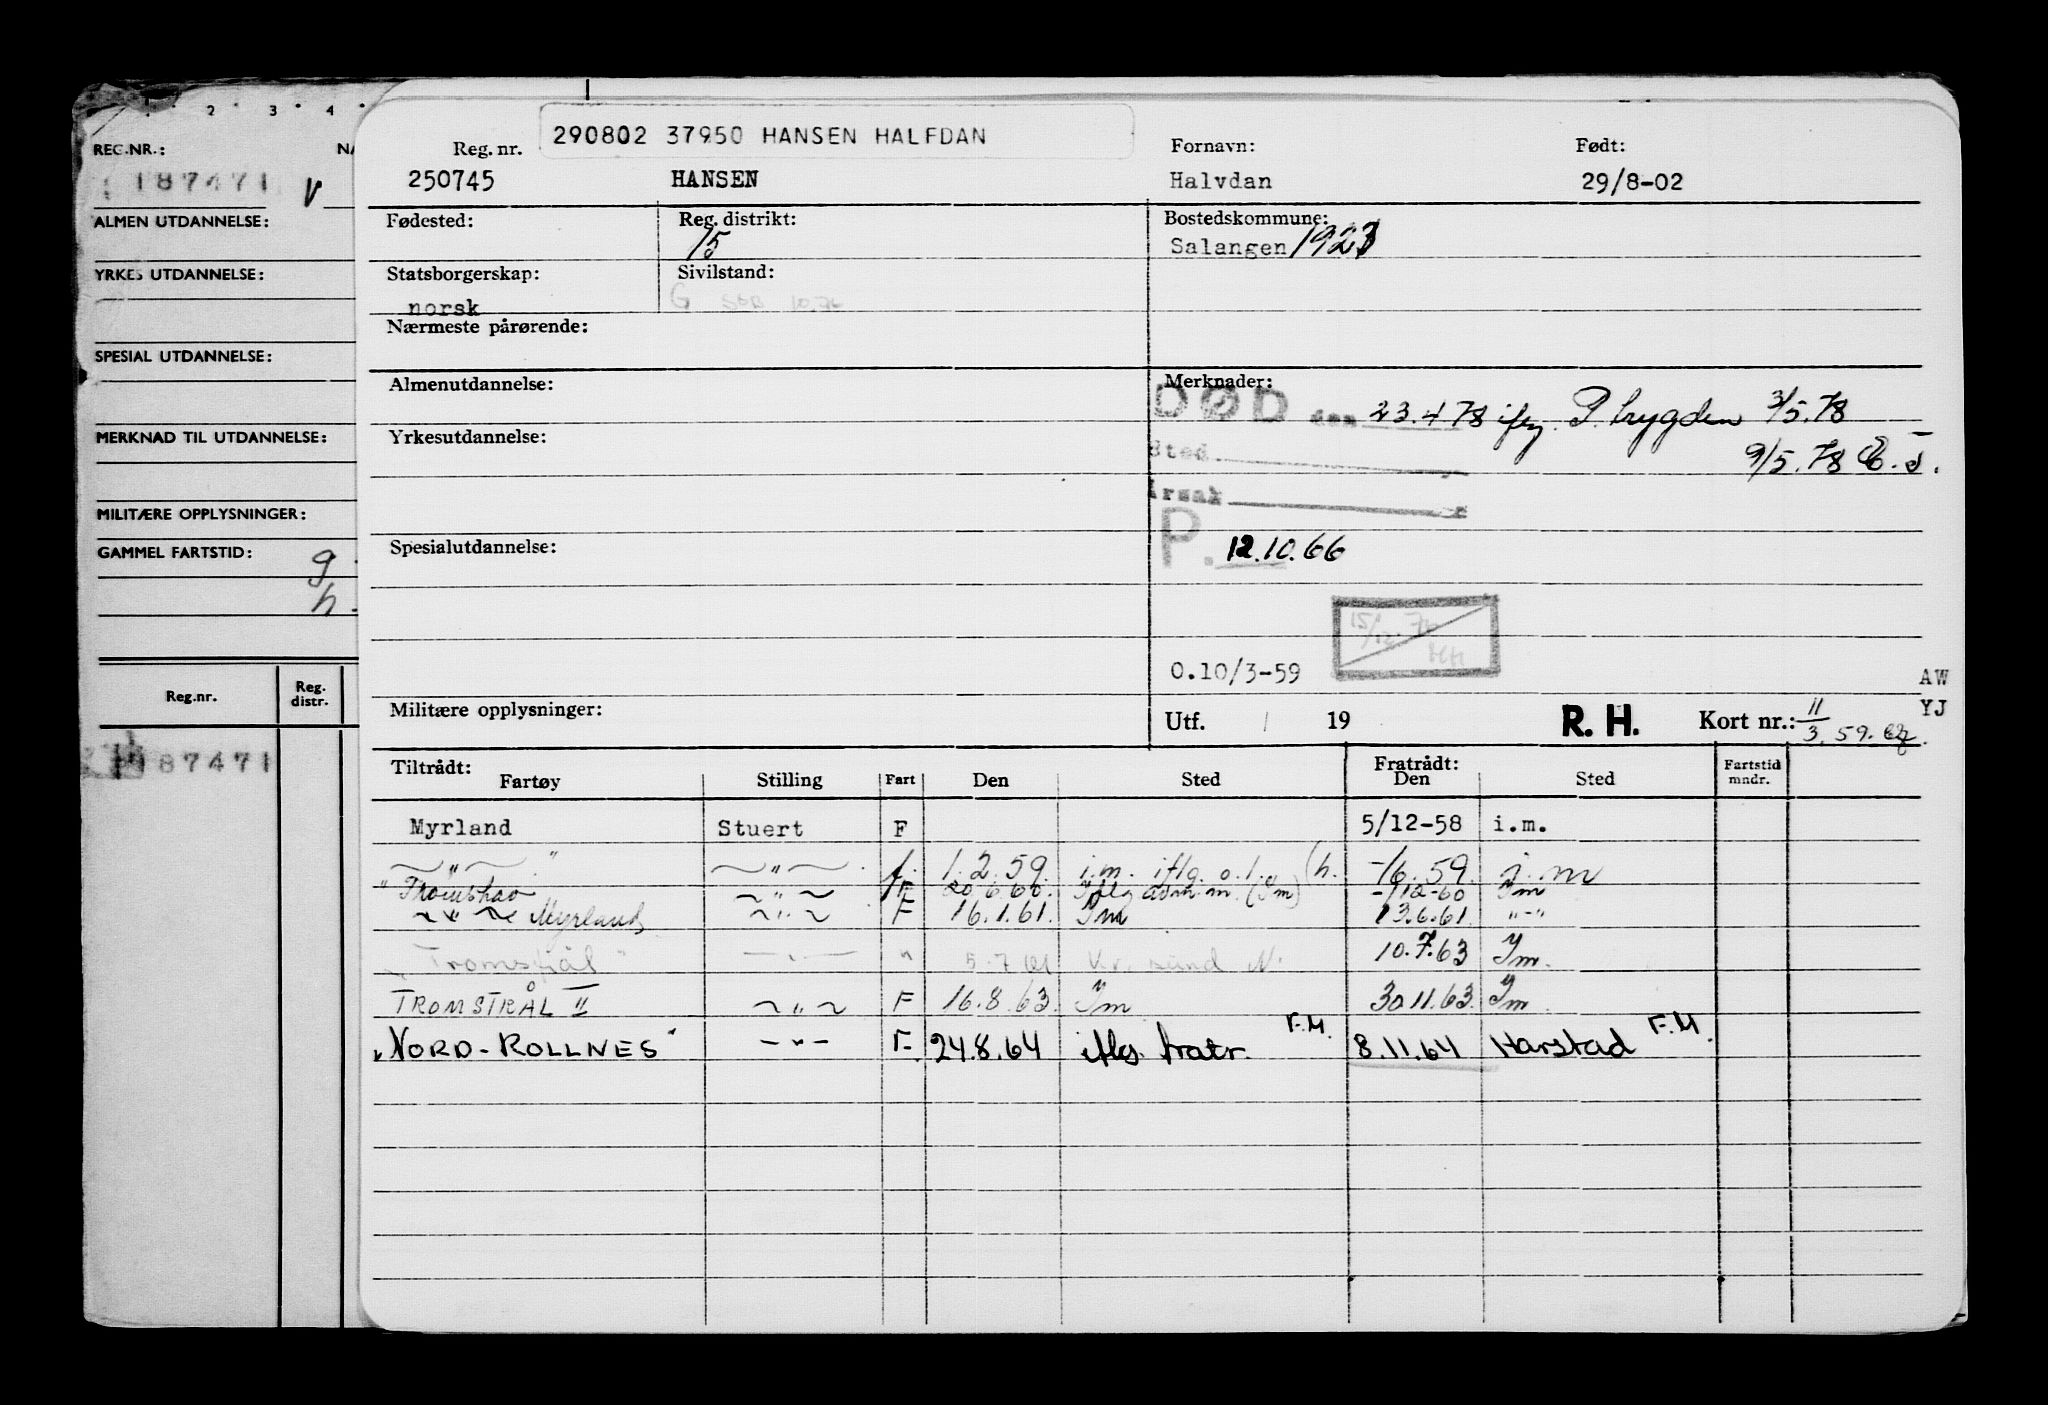 1 · 2 · 3 · 4 ·
REG.NR.:
187471 V
ALMEN UTDANNELSE:
YRKES UTDANNELSE:
SPESIAL UTDANNELSE:
MERKNAD TIL UTDANNELSE:
MILITÆRE OPPLYSNINGER:
GAMMEL FARTSTID: g.
h.
Reg.nr. Reg. distr.
187471
290802 37950 HANSEN HALFDAN
Reg. nr. Fornavn: Født:
250745 HANSEN Halvdan 29/8-02
Fødested: Reg. distrikt: Bostedskommune:
15 Salangen 1923
Statsborgerskap: Sivilstand:
norsk G
Nærmeste pårørende:
Almenutdannelse: Merknader:
DØD den 23.4 78 iflg. P. trygden 3/5.78
Yrkesutdannelse: Sted 9/5.78
Årsak
Spesialutdannelse: P. 12.10.66
15/12.
0.10/3-59 AW
Militære opplysninger: Utf. / 19 R. H. Kort nr.: 11/3. 59. YJ
Tiltrådt: Fratrådt:
Fartøy Stilling Part Den Sted Den Sted Fartstid mndr.
Myrland Stuert F 5/12-58 i.m.
" " f. 1.2.59. i.m. iflg. o.l. (h. -/6.59. i.m
"Tromshav " F 20.6.60. Iflg. (Im) -/12-60 Im
" Myrland " F 16.1.61. Im 13.6.61. "-"
" " -"- " 5.7.61 Kr.sund N. 10.7.63 Im.
TROMSTRÅL II " F 16.8.63. Im 30.11.63. Im.
"NORD-ROLLNES" -"- F. 24.8.64 iflg. fratr. F.M. 8.11.64 Harstad F.M.